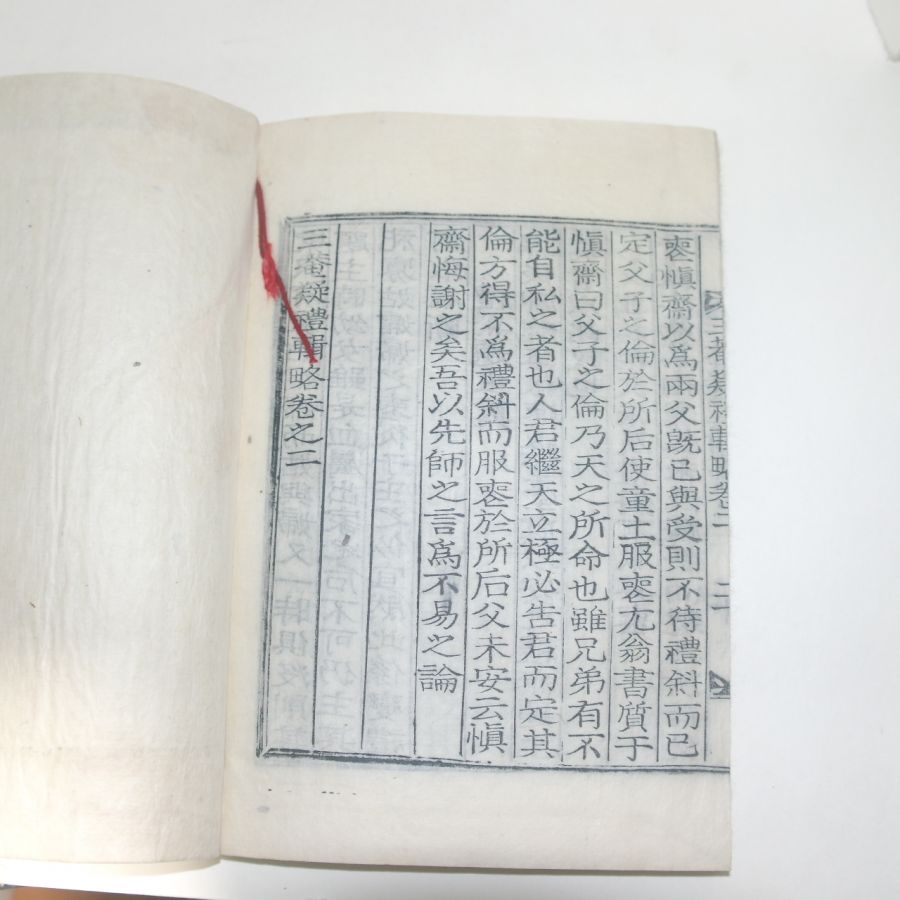 喪愼齋以爲兩父旣已與受則不待禮斜而已
定父子之倫於所后使童土服喪尤翁書質于
愼齋曰父子之倫乃天之所命也雖兄弟有不
能自私之者也人君繼天立極必告君而定其
倫方得不爲禮斜而服喪於所后父未安云愼
齋悔謝之矣吾以先師之言爲不易之論
三菴疑禮輯略卷之二